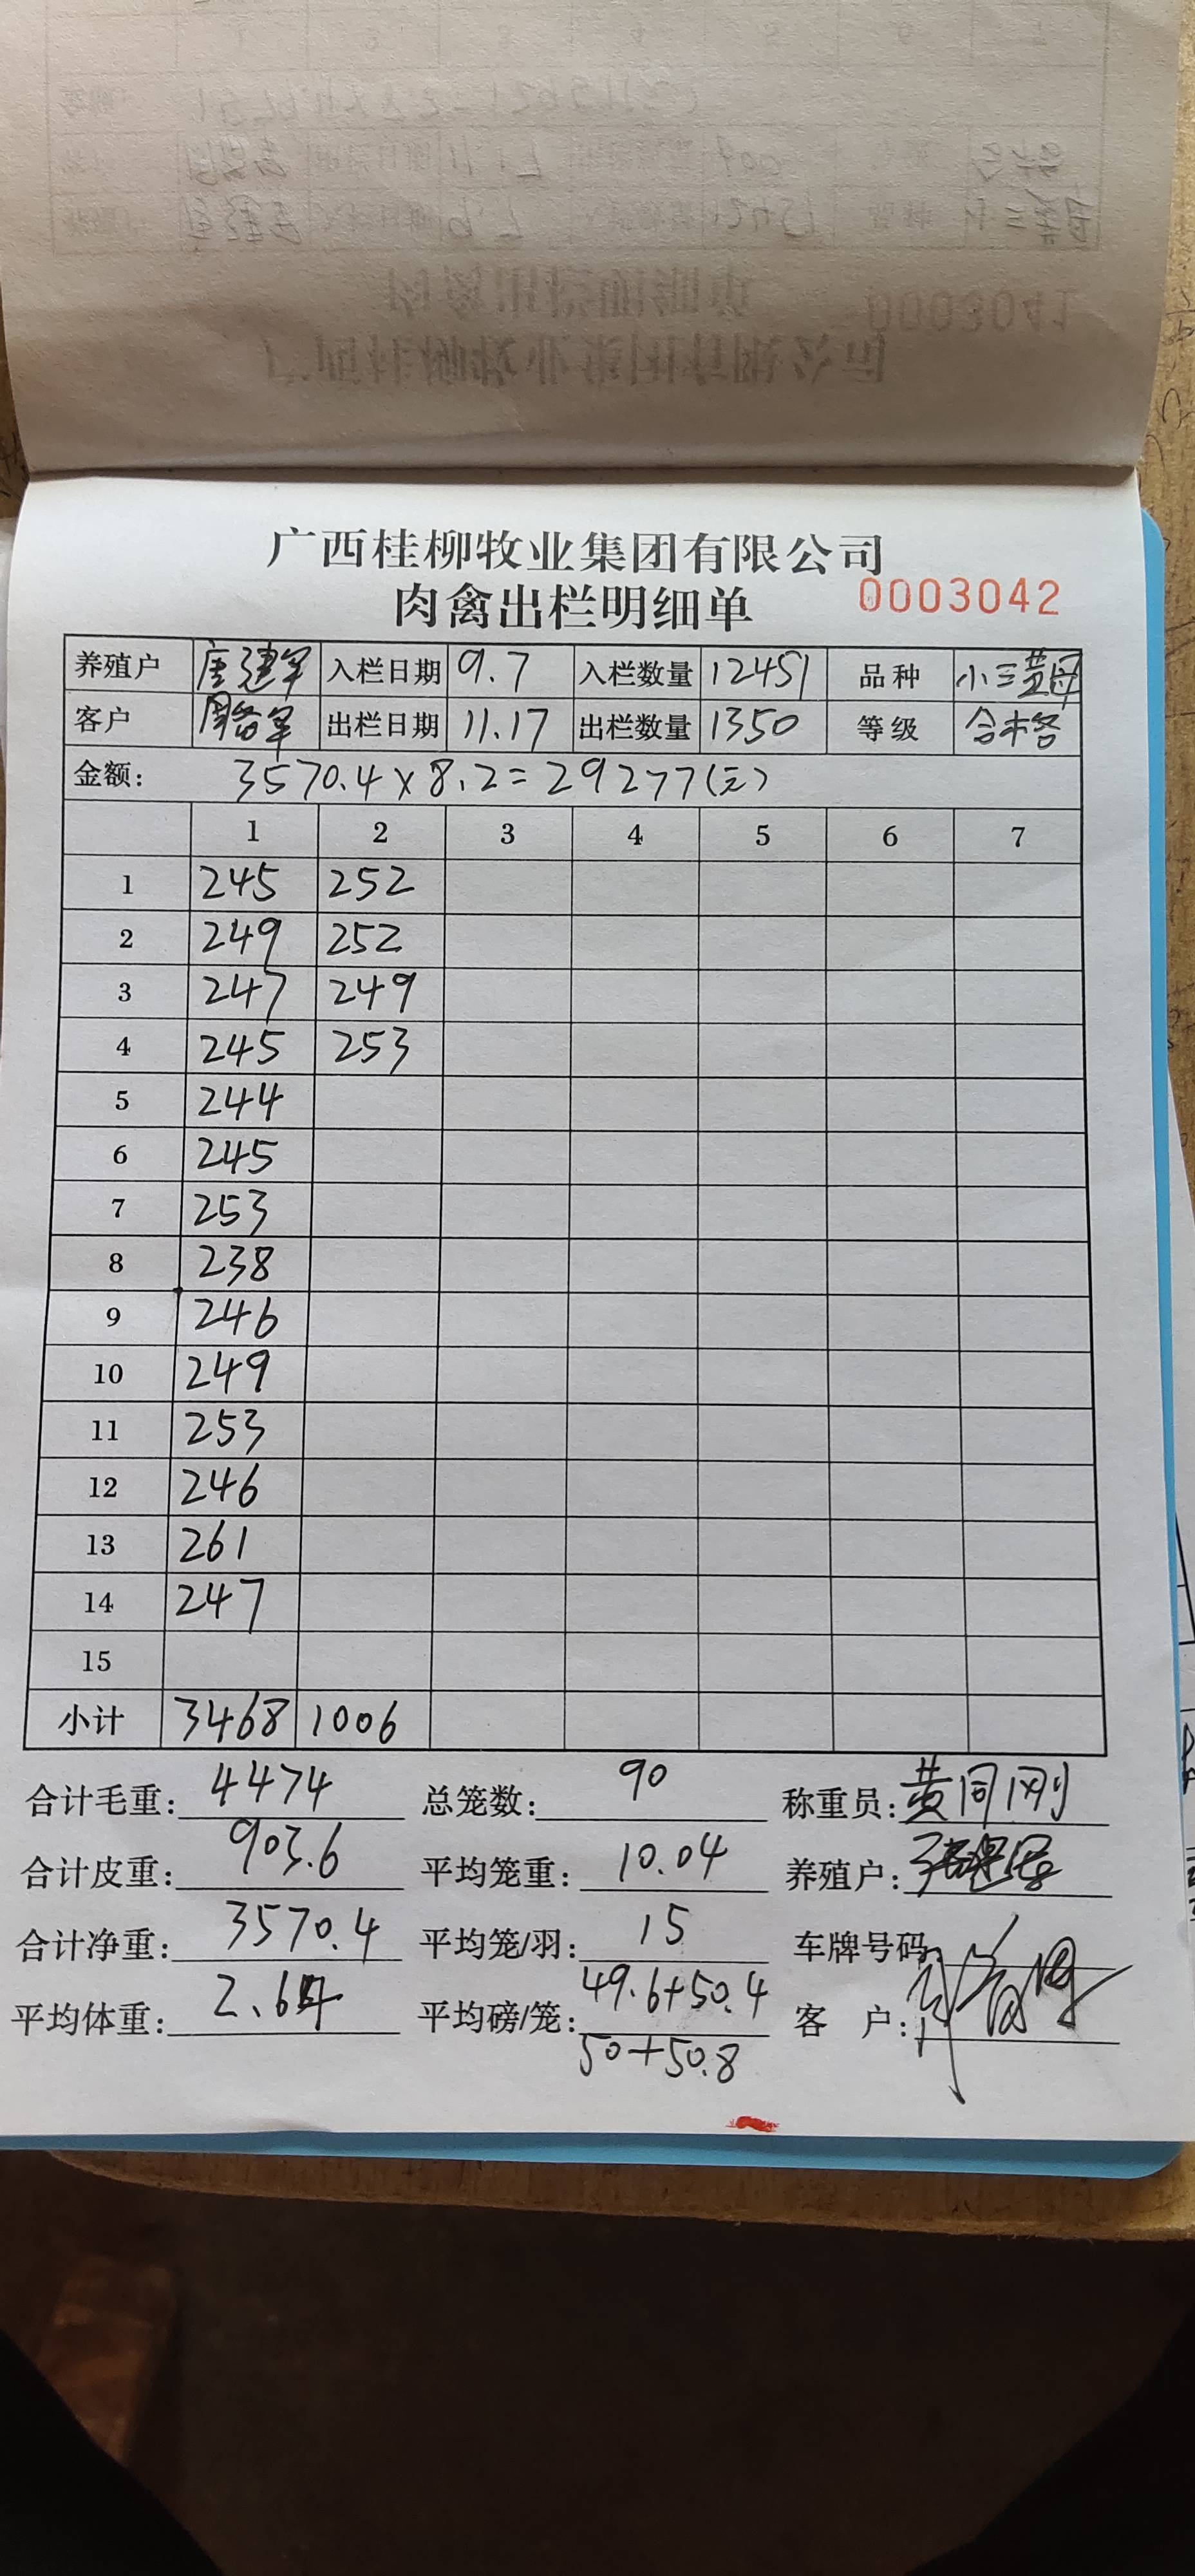 广西桂柳牧业集团有限公司
肉禽出栏明细单 0003042
养殖户 唐建军 入栏日期 9.7 入栏数量 12451 品种 小三黄母
客户 周备军 出栏日期 11.17 出栏数量 1350 等级 合格
金额: 3570.4×8.2=29277(元)
1 2 3 4 5 6 7
1 245 252
2 249 252
3 247 249
4 245 253
5 244
6 245
7 253
8 238
9 246
10 249
11 253
12 246
13 261
14 247
15
小计 3468 1006
合计毛重: 4474 总笼数: 90 称重员: 黄同刚
合计皮重: 903.6 平均笼重: 10.04 养殖户:
合计净重: 3570.4 平均笼/羽: 15 车牌号码:
平均体重: 2.64 平均磅/笼: 49.6+50.4 客 户:
50+50.8